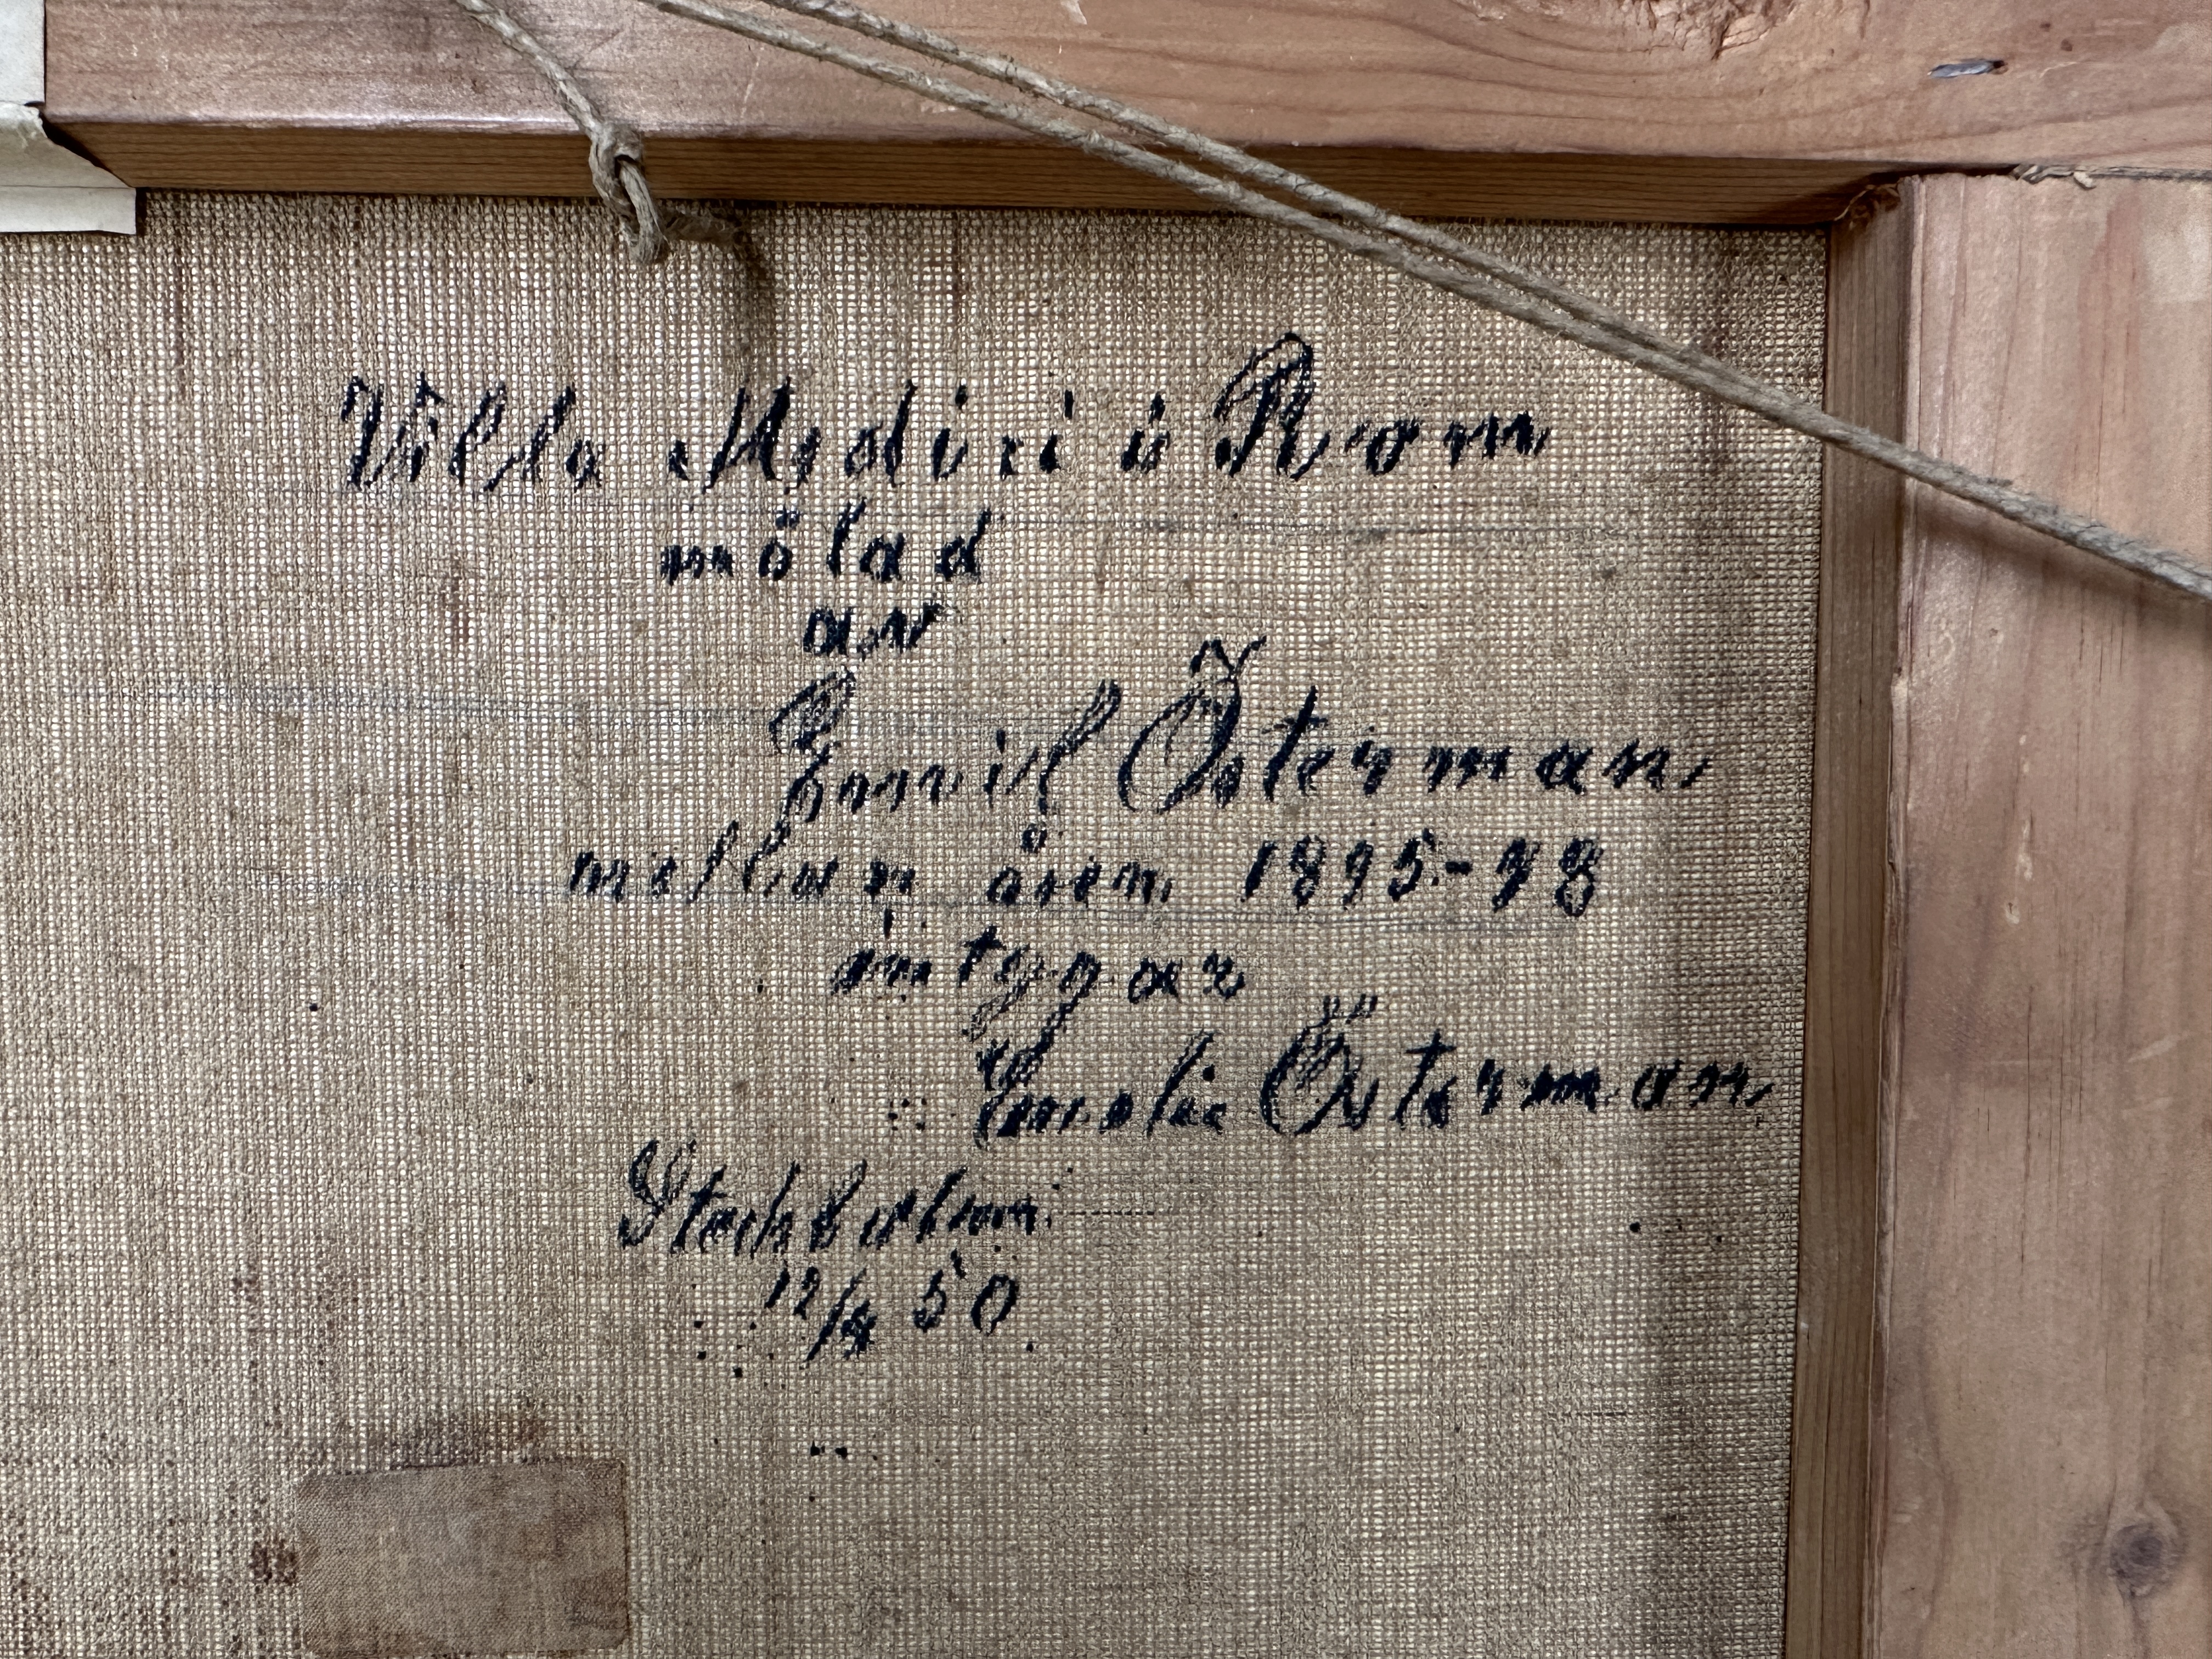 Villa Medici i Rom
målad
av
Emil Österman
mellan åren 1895-98
intygar
Emelie Österman
Stockholm
12/4 50